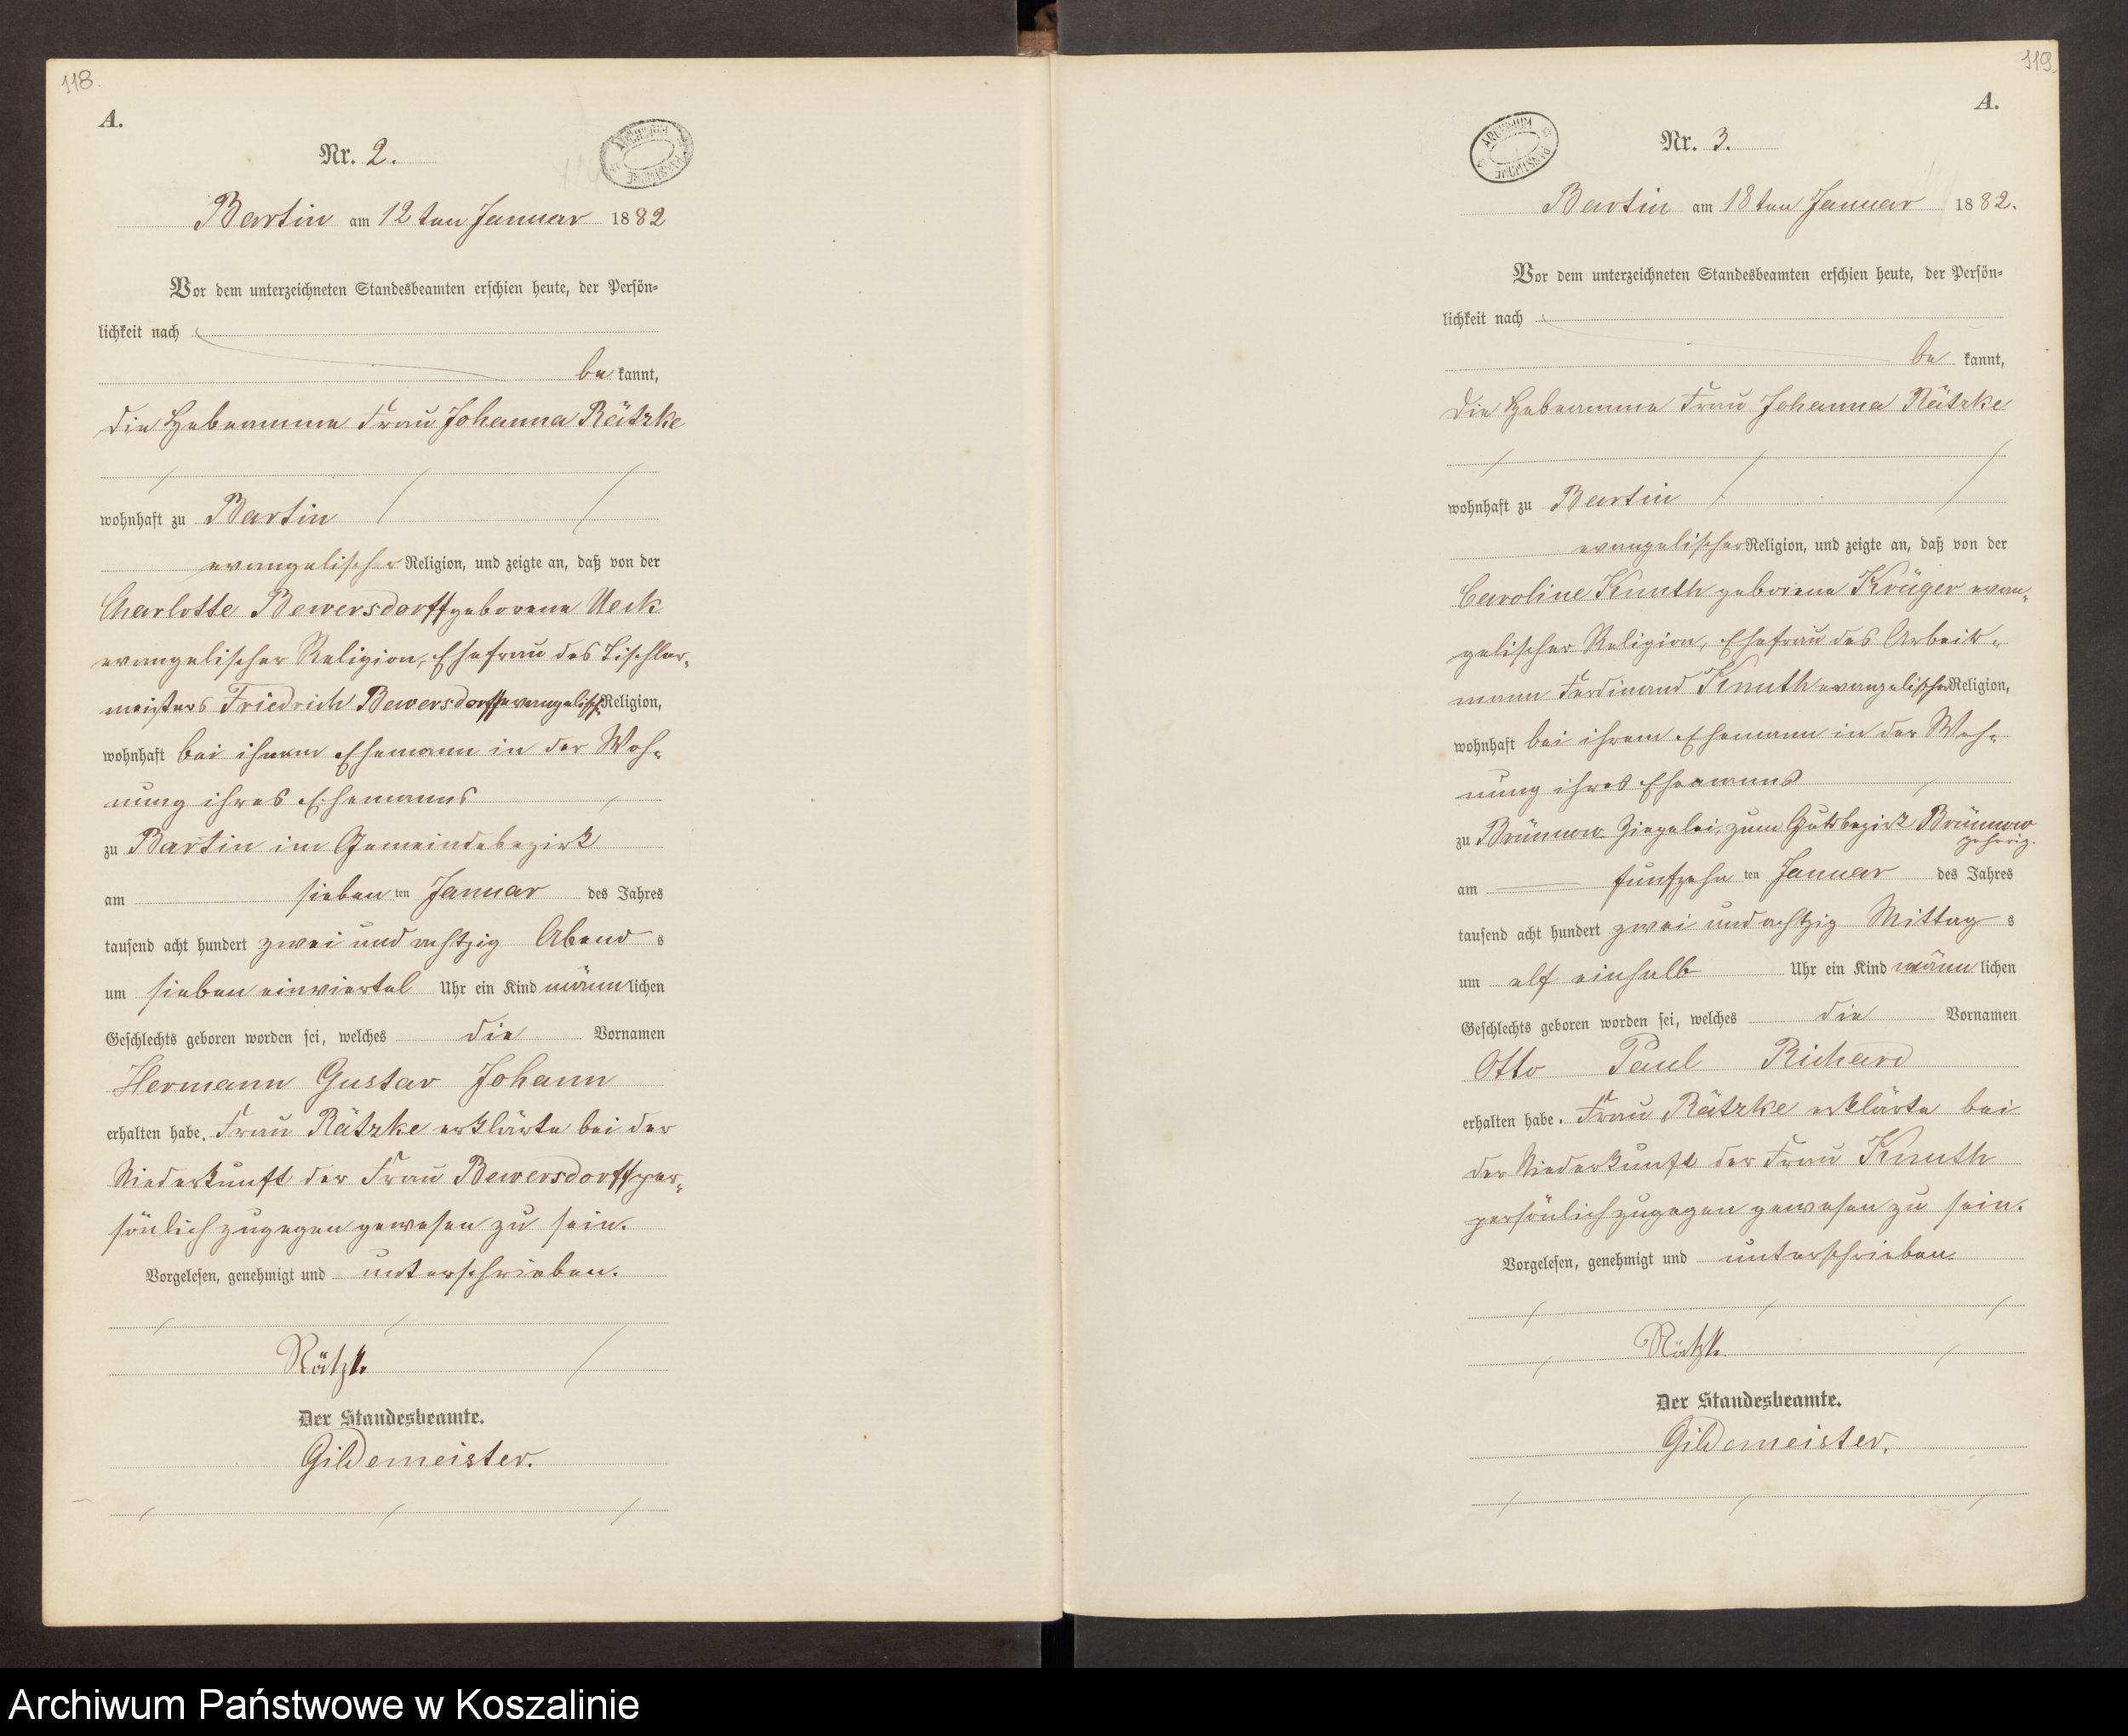 118.
A.
Nr. 2.
ARCHIWUM PAŃSTWOWE
Bartin am 12ten Januar 1882
Vor dem unterzeichneten Standesbeamten erschien heute, der Persön-
lichkeit nach
be kannt,
die Hebeamme Frau Johanna Rätzke
wohnhaft zu Bartin
evangelischer Religion, und zeigte an, daß von der
Charlotte Bewersdorff geborene Ueck
evangelischer Religion, Ehefrau des Tischler-
meisters Friedrich Bewersdorff evangelisch Religion,
wohnhaft bei ihrem Ehemann in der Woh-
nung ihres Ehemanns
zu Bartin im Gemeindebezirk
am sieben ten Januar des Jahres
tausend acht hundert zwei und achtzig Abend s
um sieben einviertel Uhr ein Kind männ lichen
Geschlechts geboren worden sei, welches die Vornamen
Hermann Gustav Johann
erhalten habe. Frau Rätzke erklärte bei der
Niederkunft der Frau Bewersdorff per-
sönlich zugegen gewesen zu sein.
Vorgelesen, genehmigt und unterschrieben.
Rätzke
Der Standesbeamte.
Gildemeister.
119.
A.
Nr. 3.
ARCHIWUM PAŃSTWOWE
Bartin am 18ten Januar 1882.
Vor dem unterzeichneten Standesbeamten erschien heute, der Persön-
lichkeit nach
be kannt,
die Hebeamme Frau Johanna Rätzke
wohnhaft zu Bartin
evangelischer Religion, und zeigte an, daß von der
Caroline Knuth geborene Krüger evan-
gelischer Religion, Ehefrau des Arbeit-
mann Ferdinand Knuth evangelischer Religion,
wohnhaft bei ihrem Ehemann in der Woh-
nung ihres Ehemanns
zu Brünnow Ziegelei, zum Gutsbezirk Brünnow
gehörig.
am fünfzehn ten Januar des Jahres
tausend acht hundert zwei und achtzig Mittag s
um elf einhalb Uhr ein Kind männ lichen
Geschlechts geboren worden sei, welches die Vornamen
Otto Paul Richard
erhalten habe. Frau Rätzke erklärte bei
der Niederkunft der Frau Knuth
persönlich zugegen gewesen zu sein.
Vorgelesen, genehmigt und unterschrieben.
Rätzke
Der Standesbeamte.
Gildemeister.
Archiwum Państwowe w Koszalinie